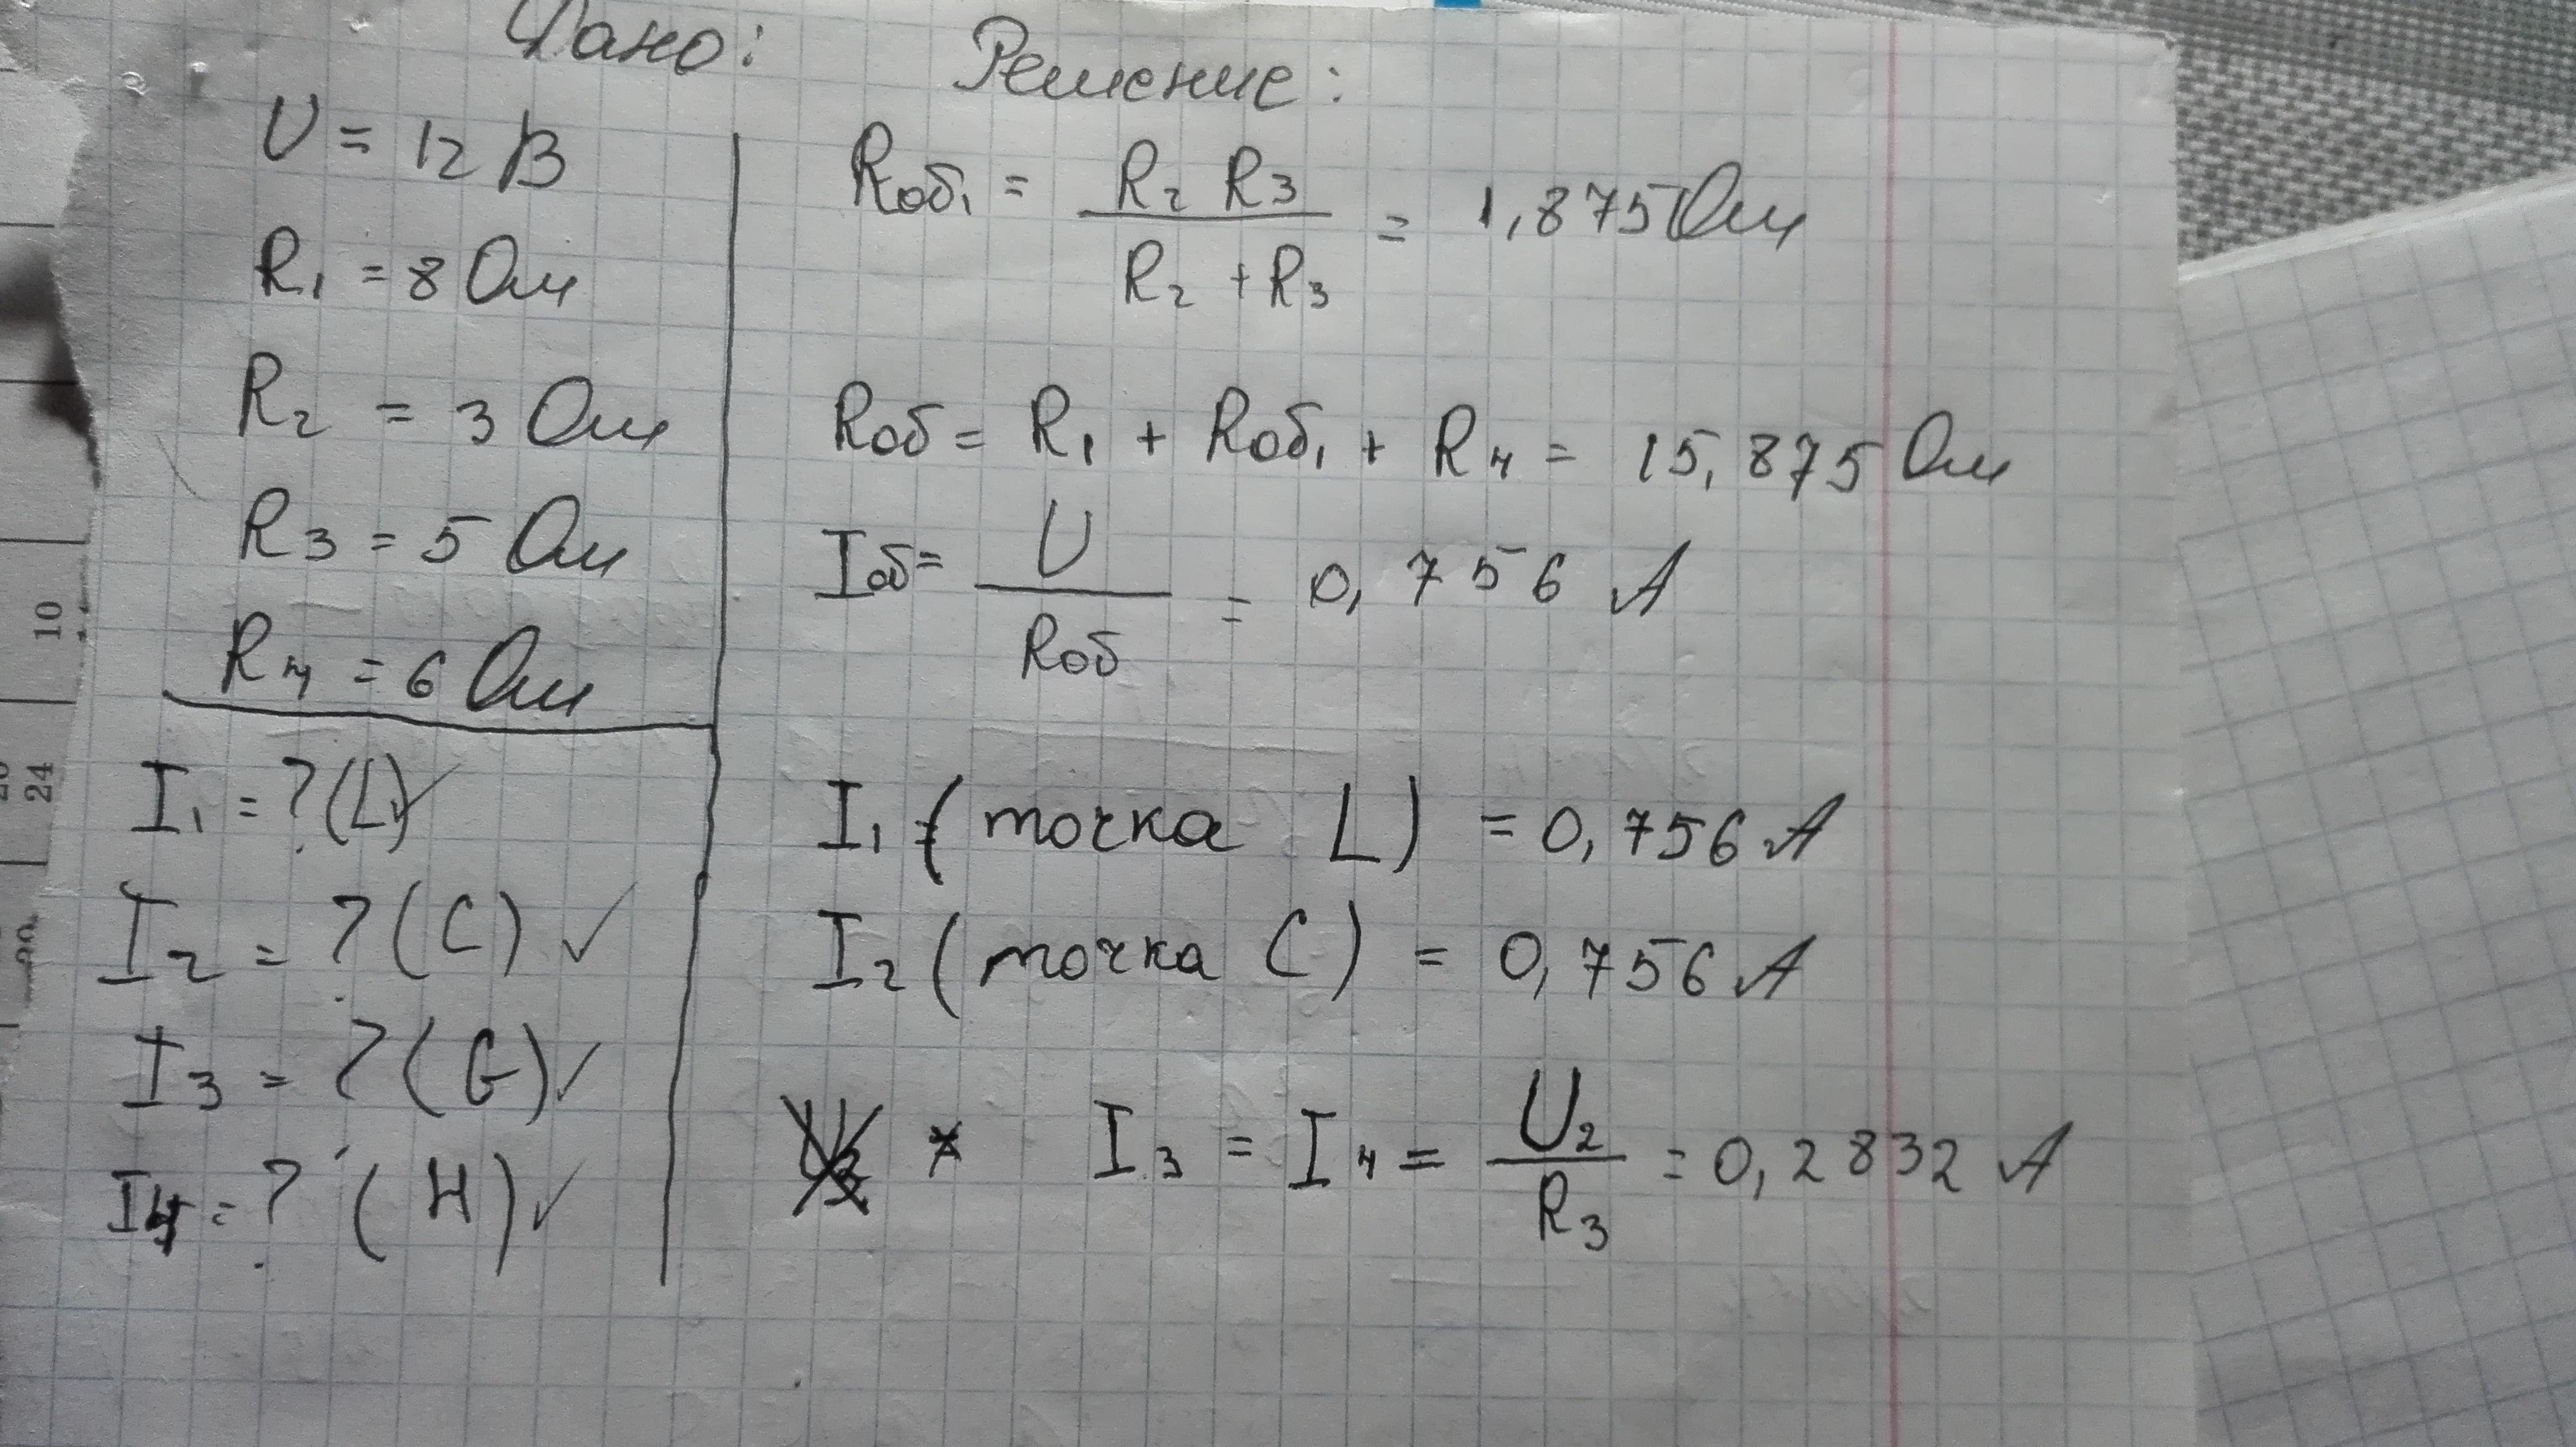 Дано:
U = 12 В
R1 = 8 Ом
R2 = 3 Ом
R3 = 5 Ом
R4 = 6 Ом
I1 = ? (L) ✓
I2 = ? (C) ✓
I3 = ? (G) ✓
I4 = ? (H) ✓
Решение:
Rоб1 = R2 R3 / R2 + R3 = 1,875 Ом
Rоб = R1 + Rоб1 + R4 = 15,875 Ом
Iоб = U / Rоб = 0,756 А
I1 (точка L) = 0,756 А
I2 (точка C) = 0,756 А
* I3 = I4 = U2 / R3 = 0,2832 А
10
24